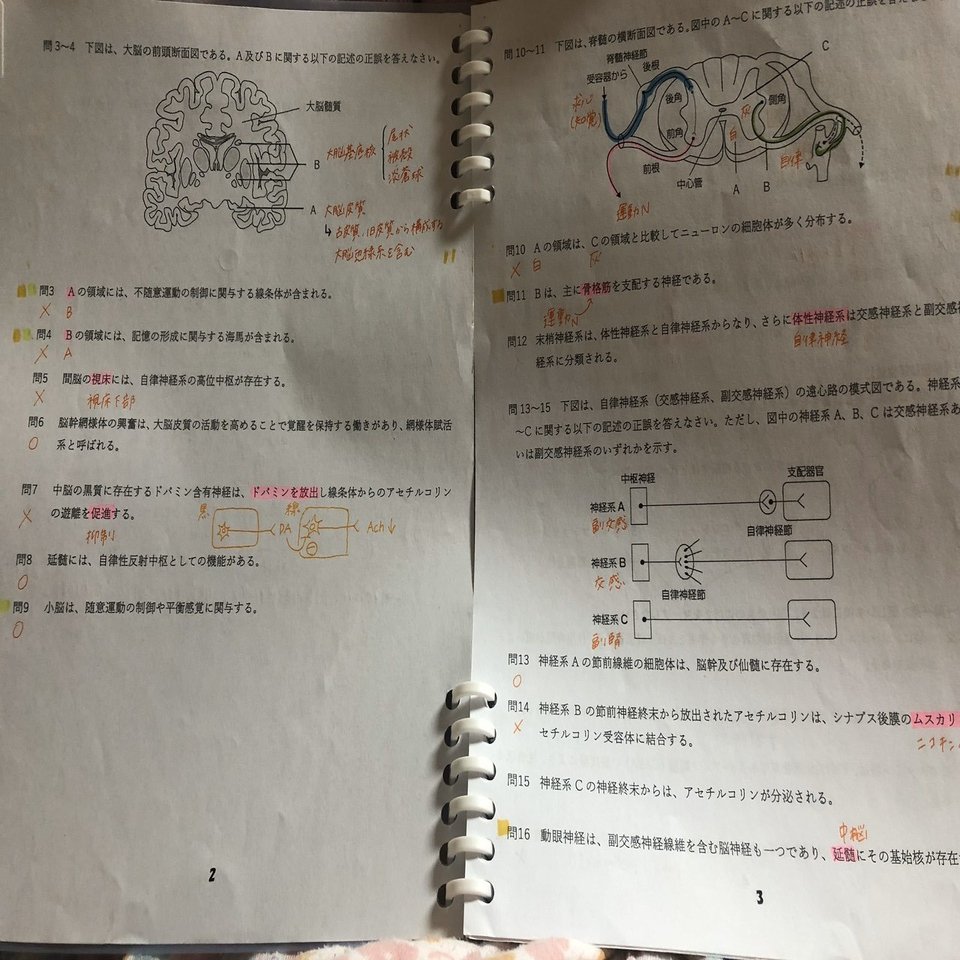 問3～4 下図は、大脳の前頭断面図である。A及びBに関する以下の記述の正誤を答えなさい。
大脳髄質
B
大脳基底核
尾状
被殻
淡蒼球
A
大脳皮質
↳古皮質、旧皮質から構成する
大脳辺縁系を含む
問3 Aの領域には、不随意運動の制御に関与する線条体が含まれる。
× B
問4 Bの領域には、記憶の形成に関与する海馬が含まれる。
× A
問5 間脳の視床には、自律神経系の高位中枢が存在する。
× 視床下部
問6 脳幹網様体の興奮は、大脳皮質の活動を高めることで覚醒を保持する働きがあり、網様体賦活
○ 系と呼ばれる。
問7 中脳の黒質に存在するドパミン含有神経は、ドパミンを放出し線条体からのアセチルコリン
× の遊離を促進する。
抑制
黒
線
DA
Ach↓
問8 延髄には、自律性反射中枢としての機能がある。
○
問9 小脳は、随意運動の制御や平衡感覚に関与する。
○
2
問10～11 下図は、脊髄の横断面図である。図中のA～Cに関する以下の記述の正誤を答えな
脊髄神経節
受容器から
後根
C
求心
(知覚)
後角
灰
側角
前角
白
前根
中心管
A
B
自律
運動N
問10 Aの領域は、Cの領域と比較してニューロンの細胞体が多く分布する。
× 白 灰
問11 Bは、主に骨格筋を支配する神経である。
運動N
問12 末梢神経系は、体性神経系と自律神経系からなり、さらに体性神経系は交感神経系と副交感神
自律神経
経系に分類される。
問13～15 下図は、自律神経系（交感神経系、副交感神経系）の遠心路の模式図である。神経系
～Cに関する以下の記述の正誤を答えなさい。ただし、図中の神経系A、B、Cは交感神経系あ
いは副交感神経系のいずれかを示す。
中枢神経
支配器官
神経系A
副交感
自律神経節
神経系B
交感
自律神経節
神経系C
問13 神経系Aの節前線維の細胞体は、脳幹及び仙髄に存在する。
○
問14 神経系Bの節前神経終末から放出されたアセチルコリンは、シナプス後膜のムスカリ
× セチルコリン受容体に結合する。
ニコチン
問15 神経系Cの神経終末からは、アセチルコリンが分泌される。
中脳
問16 動眼神経は、副交感神経線維を含む脳神経も一つであり、延髄にその基始核が存在
3